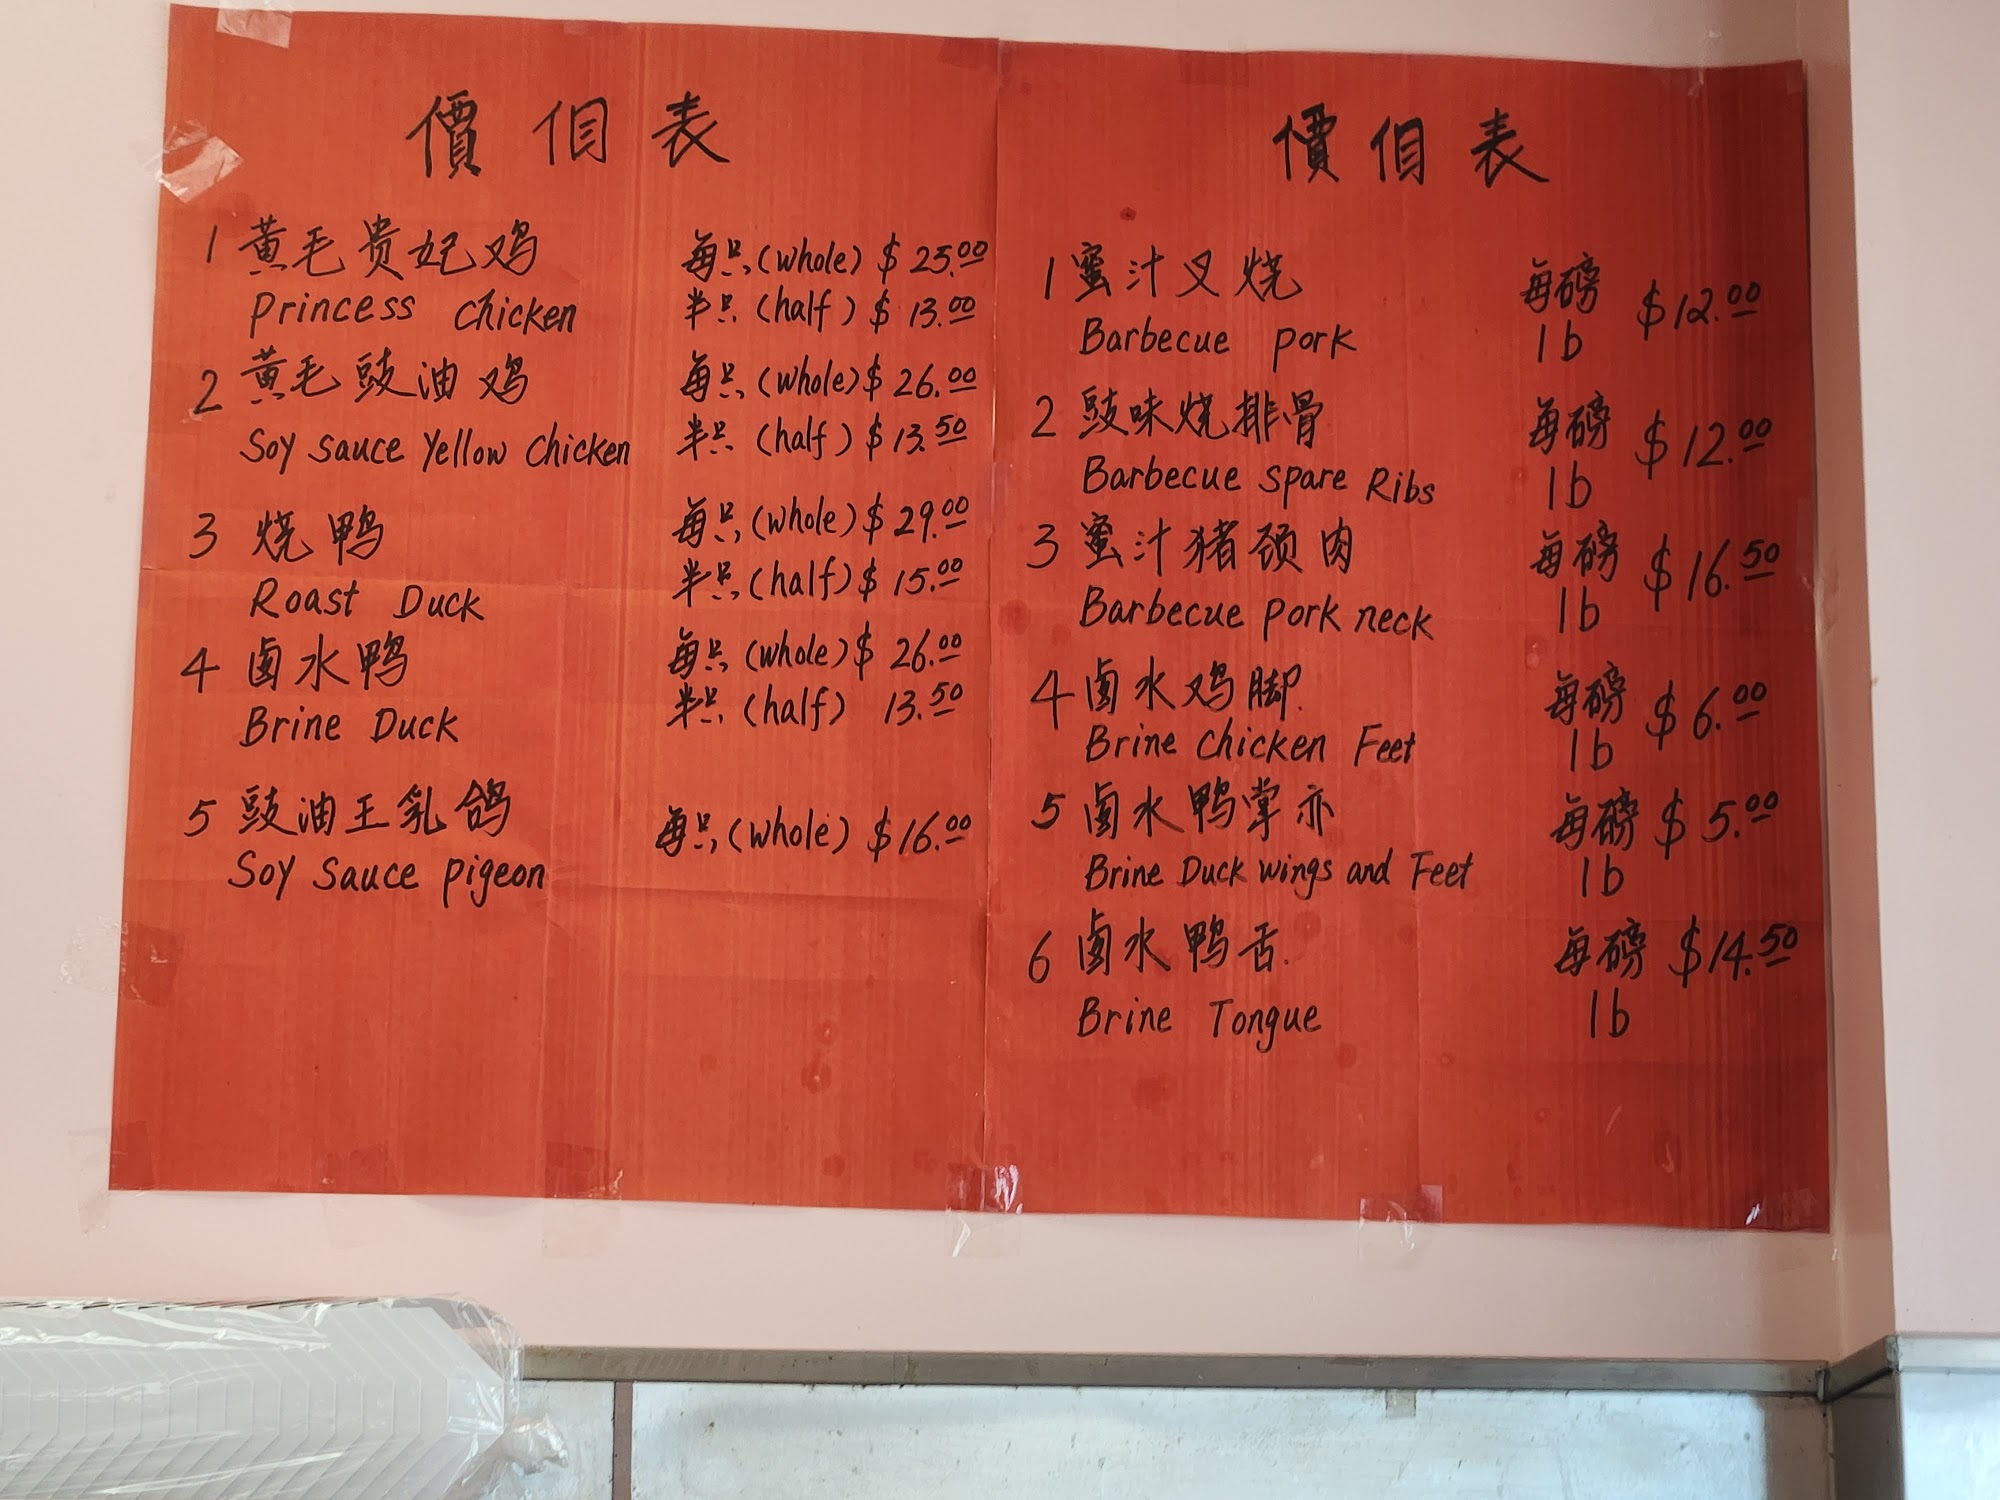 價目表
1 黄毛贵妃鸡 每只(whole) $25.00
Princess Chicken 半只(half) $13.00
2 黄毛豉油鸡 每只(whole) $26.00
Soy Sauce Yellow Chicken 半只(half) $13.50
3 烧鸭 每只(whole) $29.00
Roast Duck 半只(half) $15.00
4 卤水鸭 每只(whole) $26.00
Brine Duck 半只(half) 13.50
5 豉油王乳鸽 每只(whole) $16.00
Soy Sauce pigeon
價目表
1 蜜汁叉烧 每磅 $12.00
Barbecue pork 1b
2 豉味烧排骨 每磅 $12.00
Barbecue Spare Ribs 1b
3 蜜汁猪颈肉 每磅 $16.50
Barbecue pork neck 1b
4 卤水鸡脚 每磅 $6.00
Brine Chicken Feet 1b
5 卤水鸭掌亦 每磅 $5.00
Brine Duck wings and Feet 1b
6 卤水鸭舌 每磅 $14.50
Brine Tongue 1b